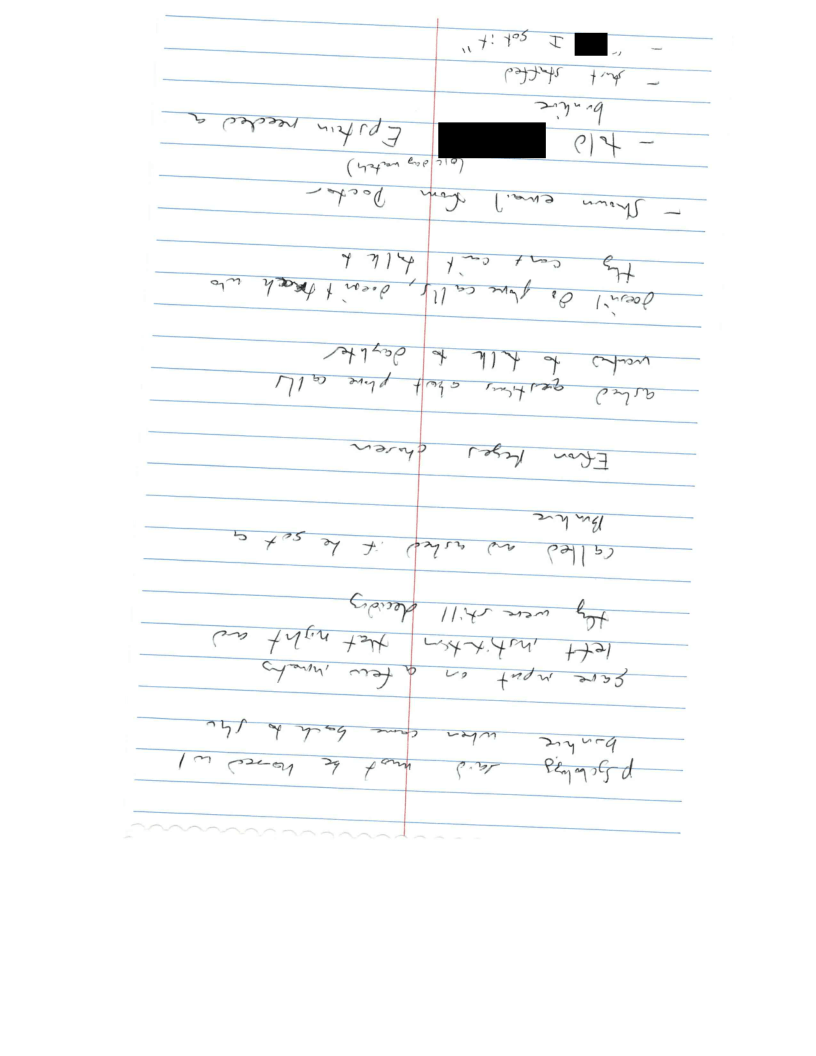 psychology said must be housed w/
bunkie when came back to SHU
gave input on a few inmates
left institution that night and
they were still deciding
called and asked if he got a
Bunkie
Efron Reyes chosen
asked questions about phone calls
wanted to talk to daughter
doesn't do phone calls, doesn't track who
they cant can't talk to
- Shown email from Doctor
(off suy watch)
- told Epstein needed a
bunkie
- just staffed
- " I got it"